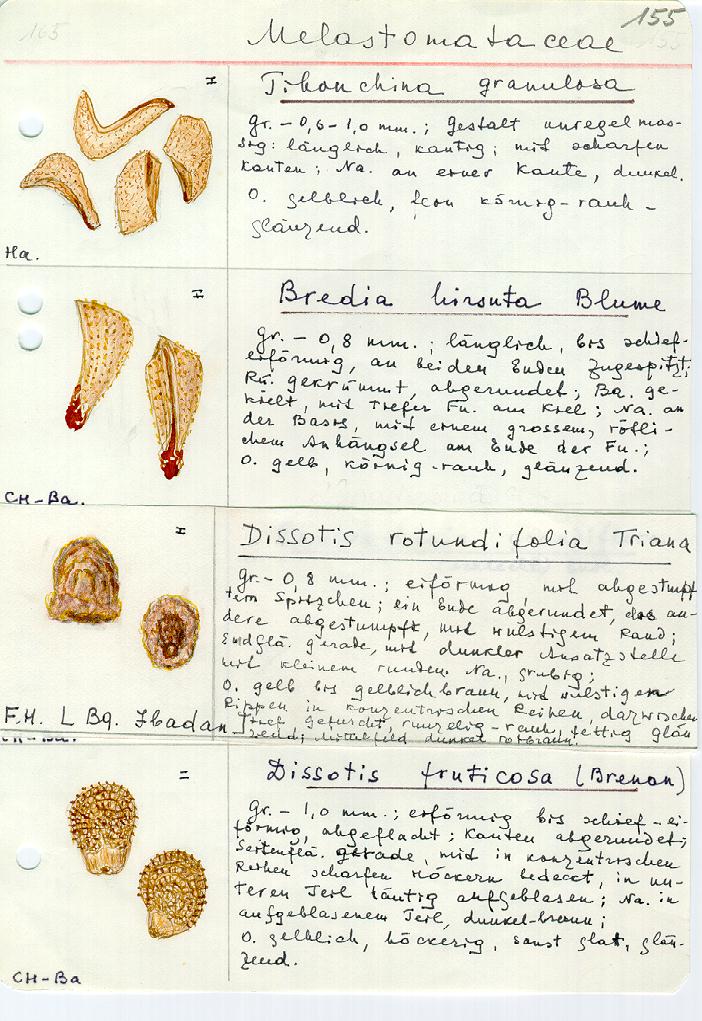 155
165
155
Melastomataceae
Tibouchina granulosa
gr. – 0,6 – 1,0 mm.; Gestalt unregelmäs-
sig: länglich, kantig; mit scharfen
Kanten; Na. an einer Kante, dunkel.
O. gelblich, körnig-rauh –
glänzend.
Ha.
Bredia hirsuta Blume
gr. – 0,8 mm.; länglich, bis schief-
eiförmig, an beiden Enden zugespitzt;
Rü. gekrümmt, abgerundet; Ba. ge-
kielt, mit tiefer Fu. am Kiel; Na. an
der Basis, mit einem grossem, rötli-
chem Anhängsel am Ende der Fu.;
O. gelb, körnig-rauh, glänzend.
CH-Ba.
Dissotis rotundifolia Triana
gr. – 0,8 mm.; eiförmig, mit abgestumpf
tem Spitzchen; ein Ende abgerundet, das an-
dere abgestumpft, mit wulstigem Rand;
Endflä. gerade, mit dunkler Ansatzstelle
mit kleinem runden Na., grubig;
O. gelb bis gelblichbraun, mit wulstigen
Rippen in konzentrischen Reihen, dazwischen
tief gefurcht, runzelig-rauh, fettig glän
zend; Mittelfeld dunkel rotbraun.
F.H. L Bg. Ibadan
CH-Ba.
Dissotis fruticosa (Brenan)
gr. – 1,0 mm.; eiförmig bis schief-ei-
förmig, abgeflacht; Kanten abgerundet;
Seitenflä. gerade, mit in konzentrischen
Reihen scharfen Höckern bedeckt, in un-
teren Teil häutig aufgeblasen; Na. in
aufgeblasenem Teil, dunkel-braun;
O. gelblich, höckerig, sonst glat, glän-
zend.
CH-Ba